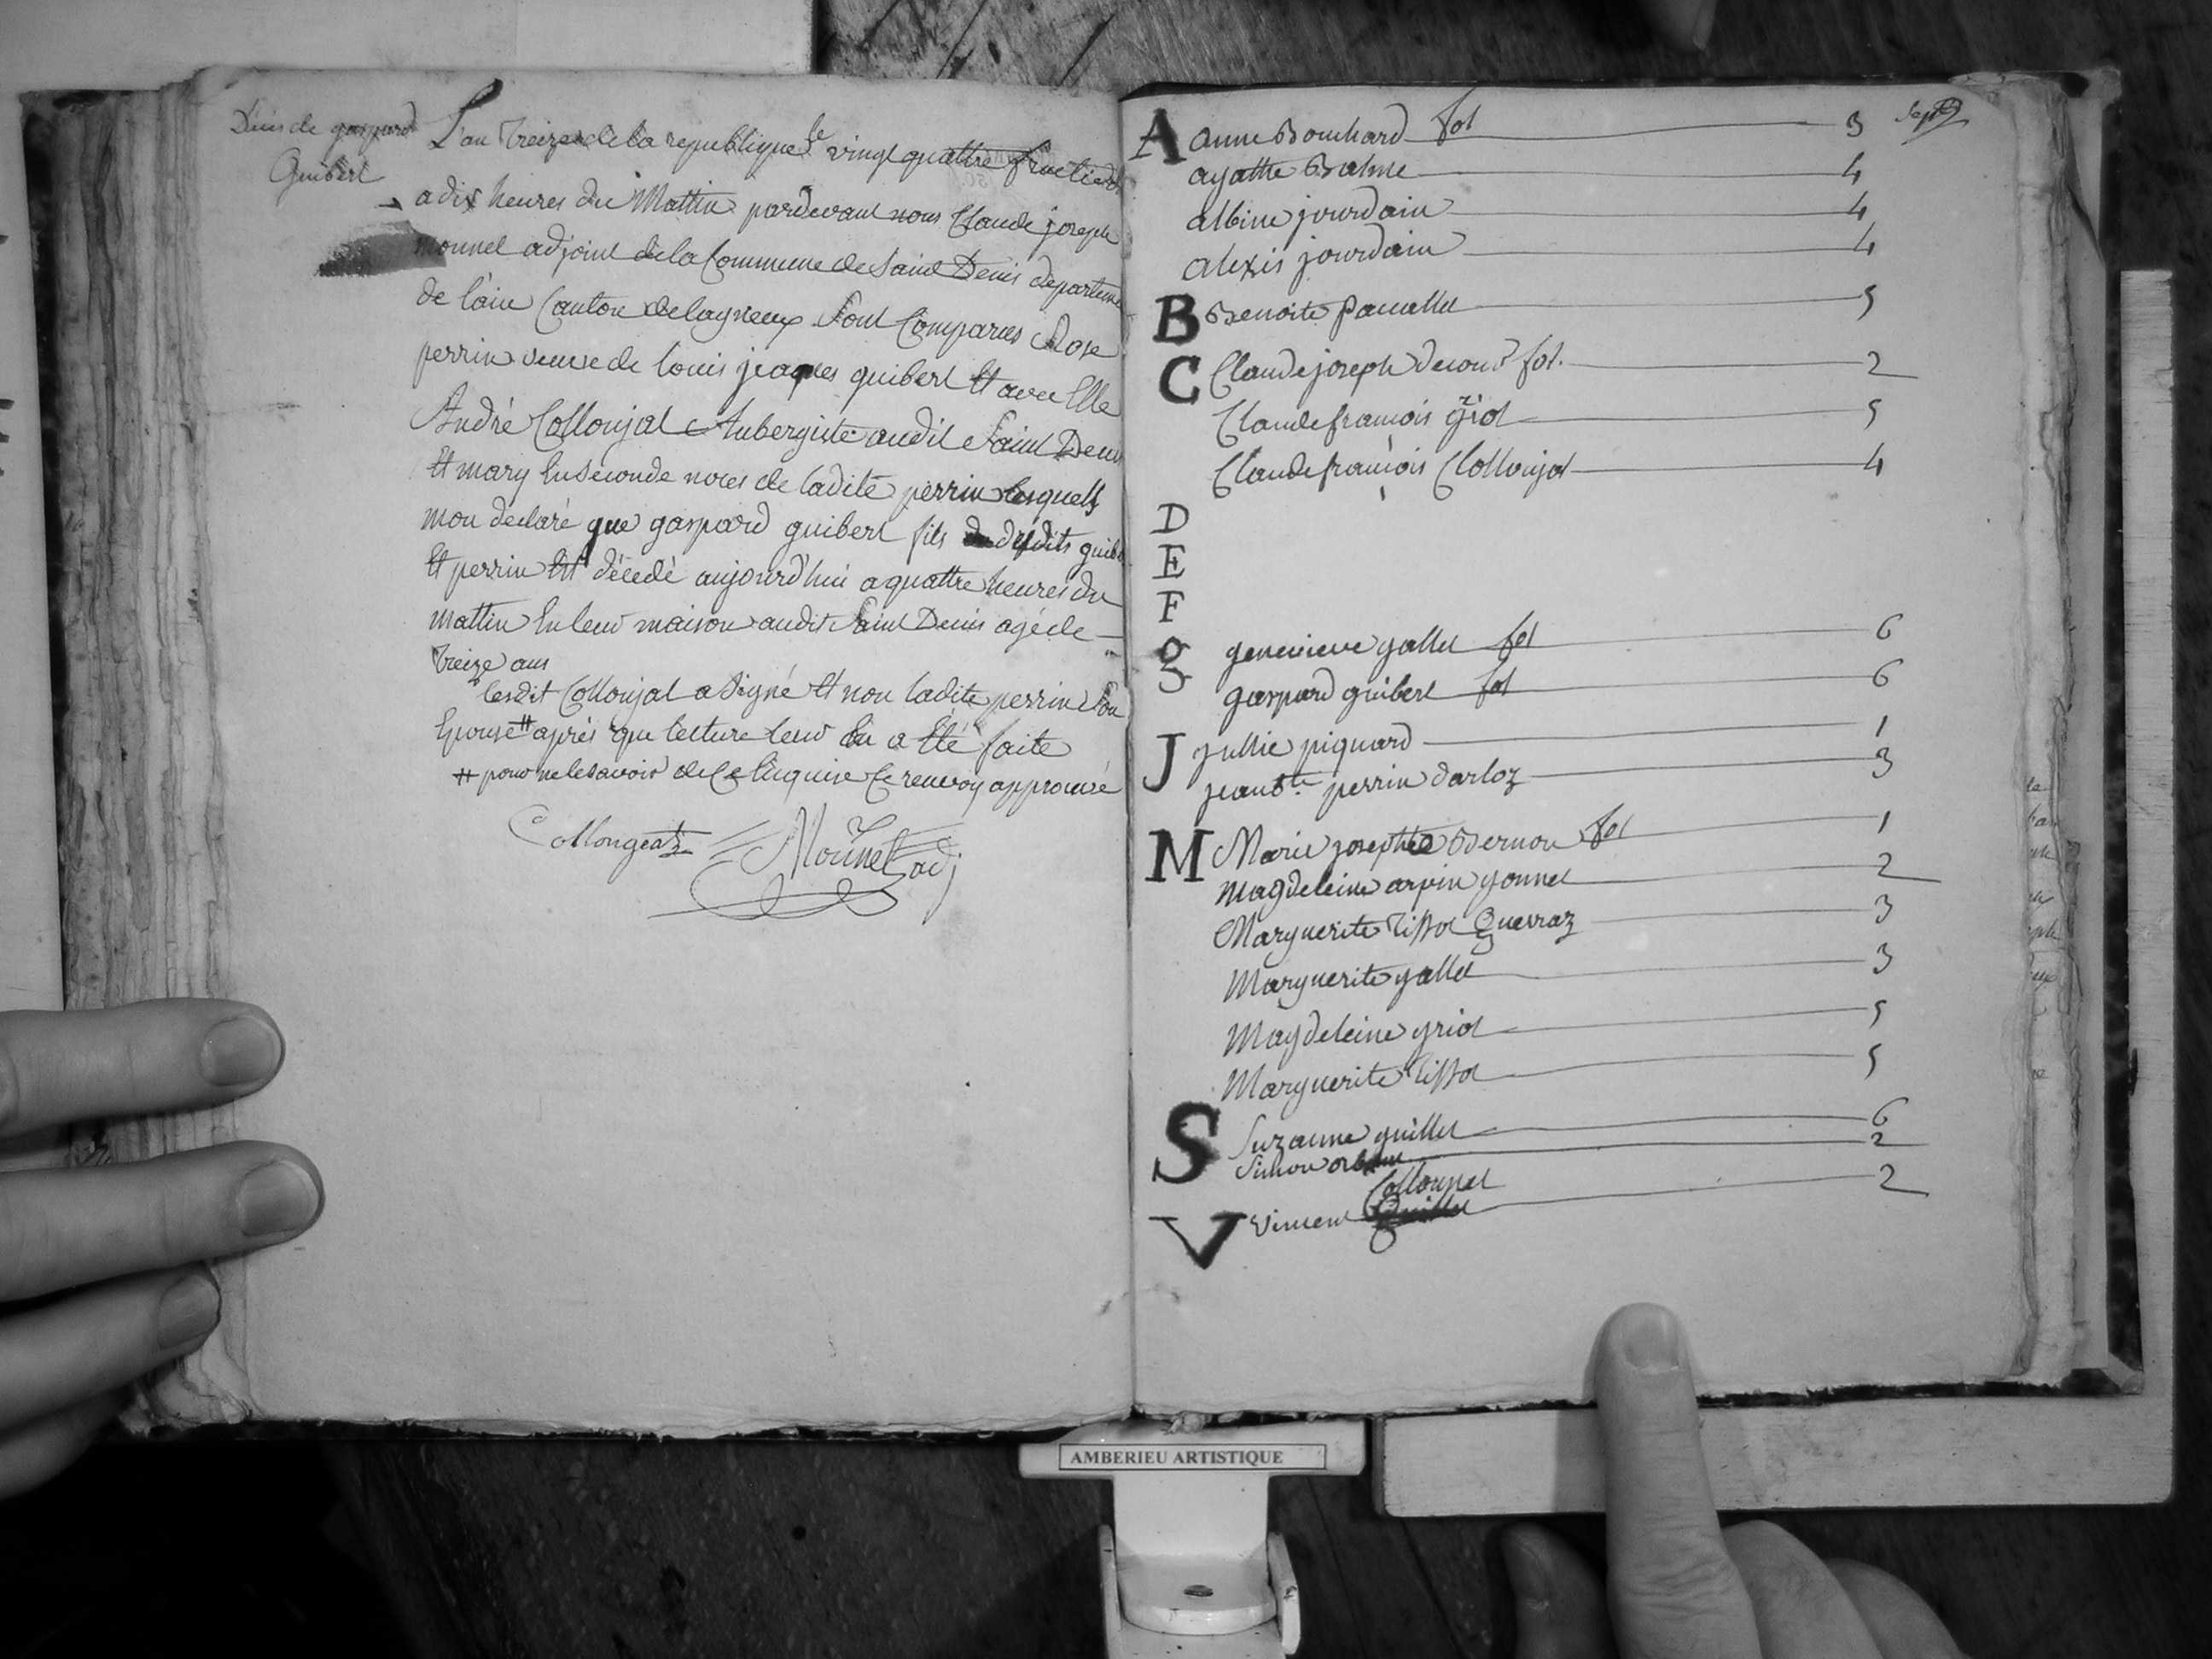 Déces de gaspard
Guibert
L'an treize de la republique le vingt quattre fructidor
a dix heures du Mattin pardevant nous Claude joseph
monnet adjoint de la Commune de Saint Denis departeme
de l'ain Canton de lagnieux Sont Comparus Rose
perrin veuve de louis jeaques guibert Et avec Elle
André Collonjat Aubergiste audit Saint Denis
Et mary En Seconde noces de ladite perrin lesquels
mon declaré que gaspard guibert fils desdits guibe
Et perrin Est décedé aujourd'hui a quattre heures du
mattin En leur maison audit Saint Denis agé de
treize ans
Ledit Collonjat a Signé Et non ladite perrin Son
Epouse # aprés que lecture leur En a Eté faite
# pour ne le savoir de Ce Enquise Ce renvoy approuvé
Collongeat
Monnet adj
Sept
A anne Bouchard fol 3
agatthe Balme 4
albine jourdain 4
alexis jourdain 4
B Benoite 5
C Claude joseph fol. 2
Claude francois griot 5
Claude francois Collonjat 4
D
E
F
g genevieve gallet fol 6
gaspard guibert fol 6
J jullie piquard 1
jean bte perrin darloz 3
M Marie josephte Bernou fol 1
magdeleine arpin gonnet 2
Marguerite Tissot Querraz 3
Marguerite gallet 3
Magdeleine griot 5
Marguerite Tissot 5
S Suzanne guillet 6
Simon orban 2
Collonjat
V Vincent 2
AMBERIEU ARTISTIQUE